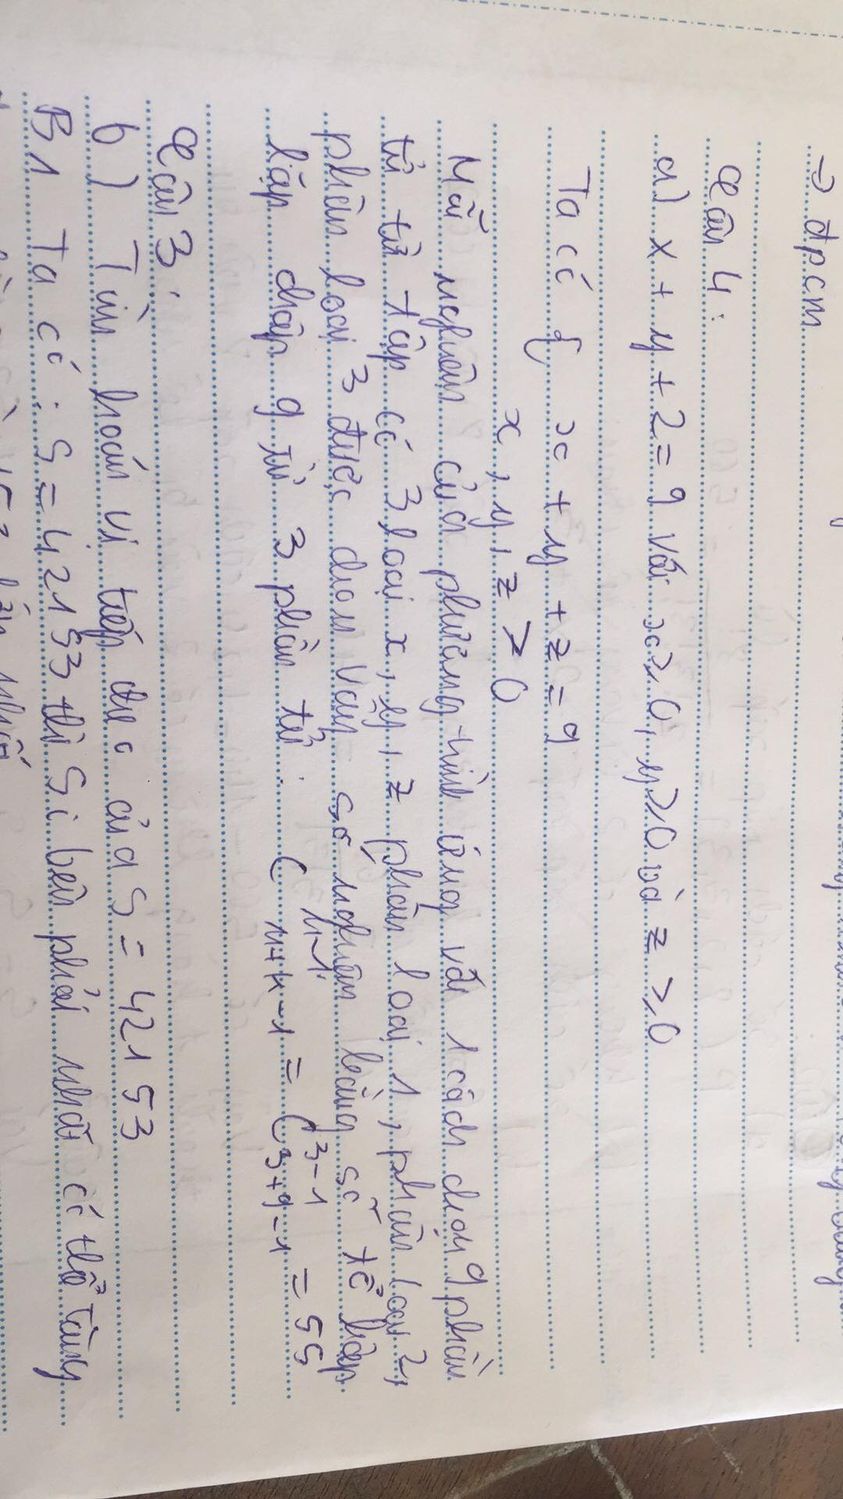 → đpcm
Câu 4:
a) x + y + z = 9 với x ≥ 0, y ≥ 0 và z ≥ 0
Ta có { x + y + z = 9
x, y, z ≥ 0
Mỗi nghiệm của phương trình ứng với 1 cách chọn 9 phần
tử từ tập có 3 loại x, y, z phần loại 1, phần loại 2,
phần loại 3 được chọn. Vậy số nghiệm bằng số tổ hợp
lặp chập 9 từ 3 phần tử: C n+k-1 = C 3-1 3+9-1 = 55
Câu 3.
b) Tìm hoán vị tiếp theo của S = 42153
B1 Ta có: S = 42153 thì Si bên phải nhất có thể tăng